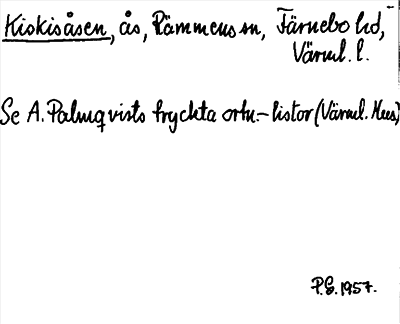 Kiskisåsen, ås, Rämmens sn, Färnebo hd,
Värml. l.
Se A. Palmqvists tryckta ortn.-listor (Värml. Mus.)
P.G. 1957.